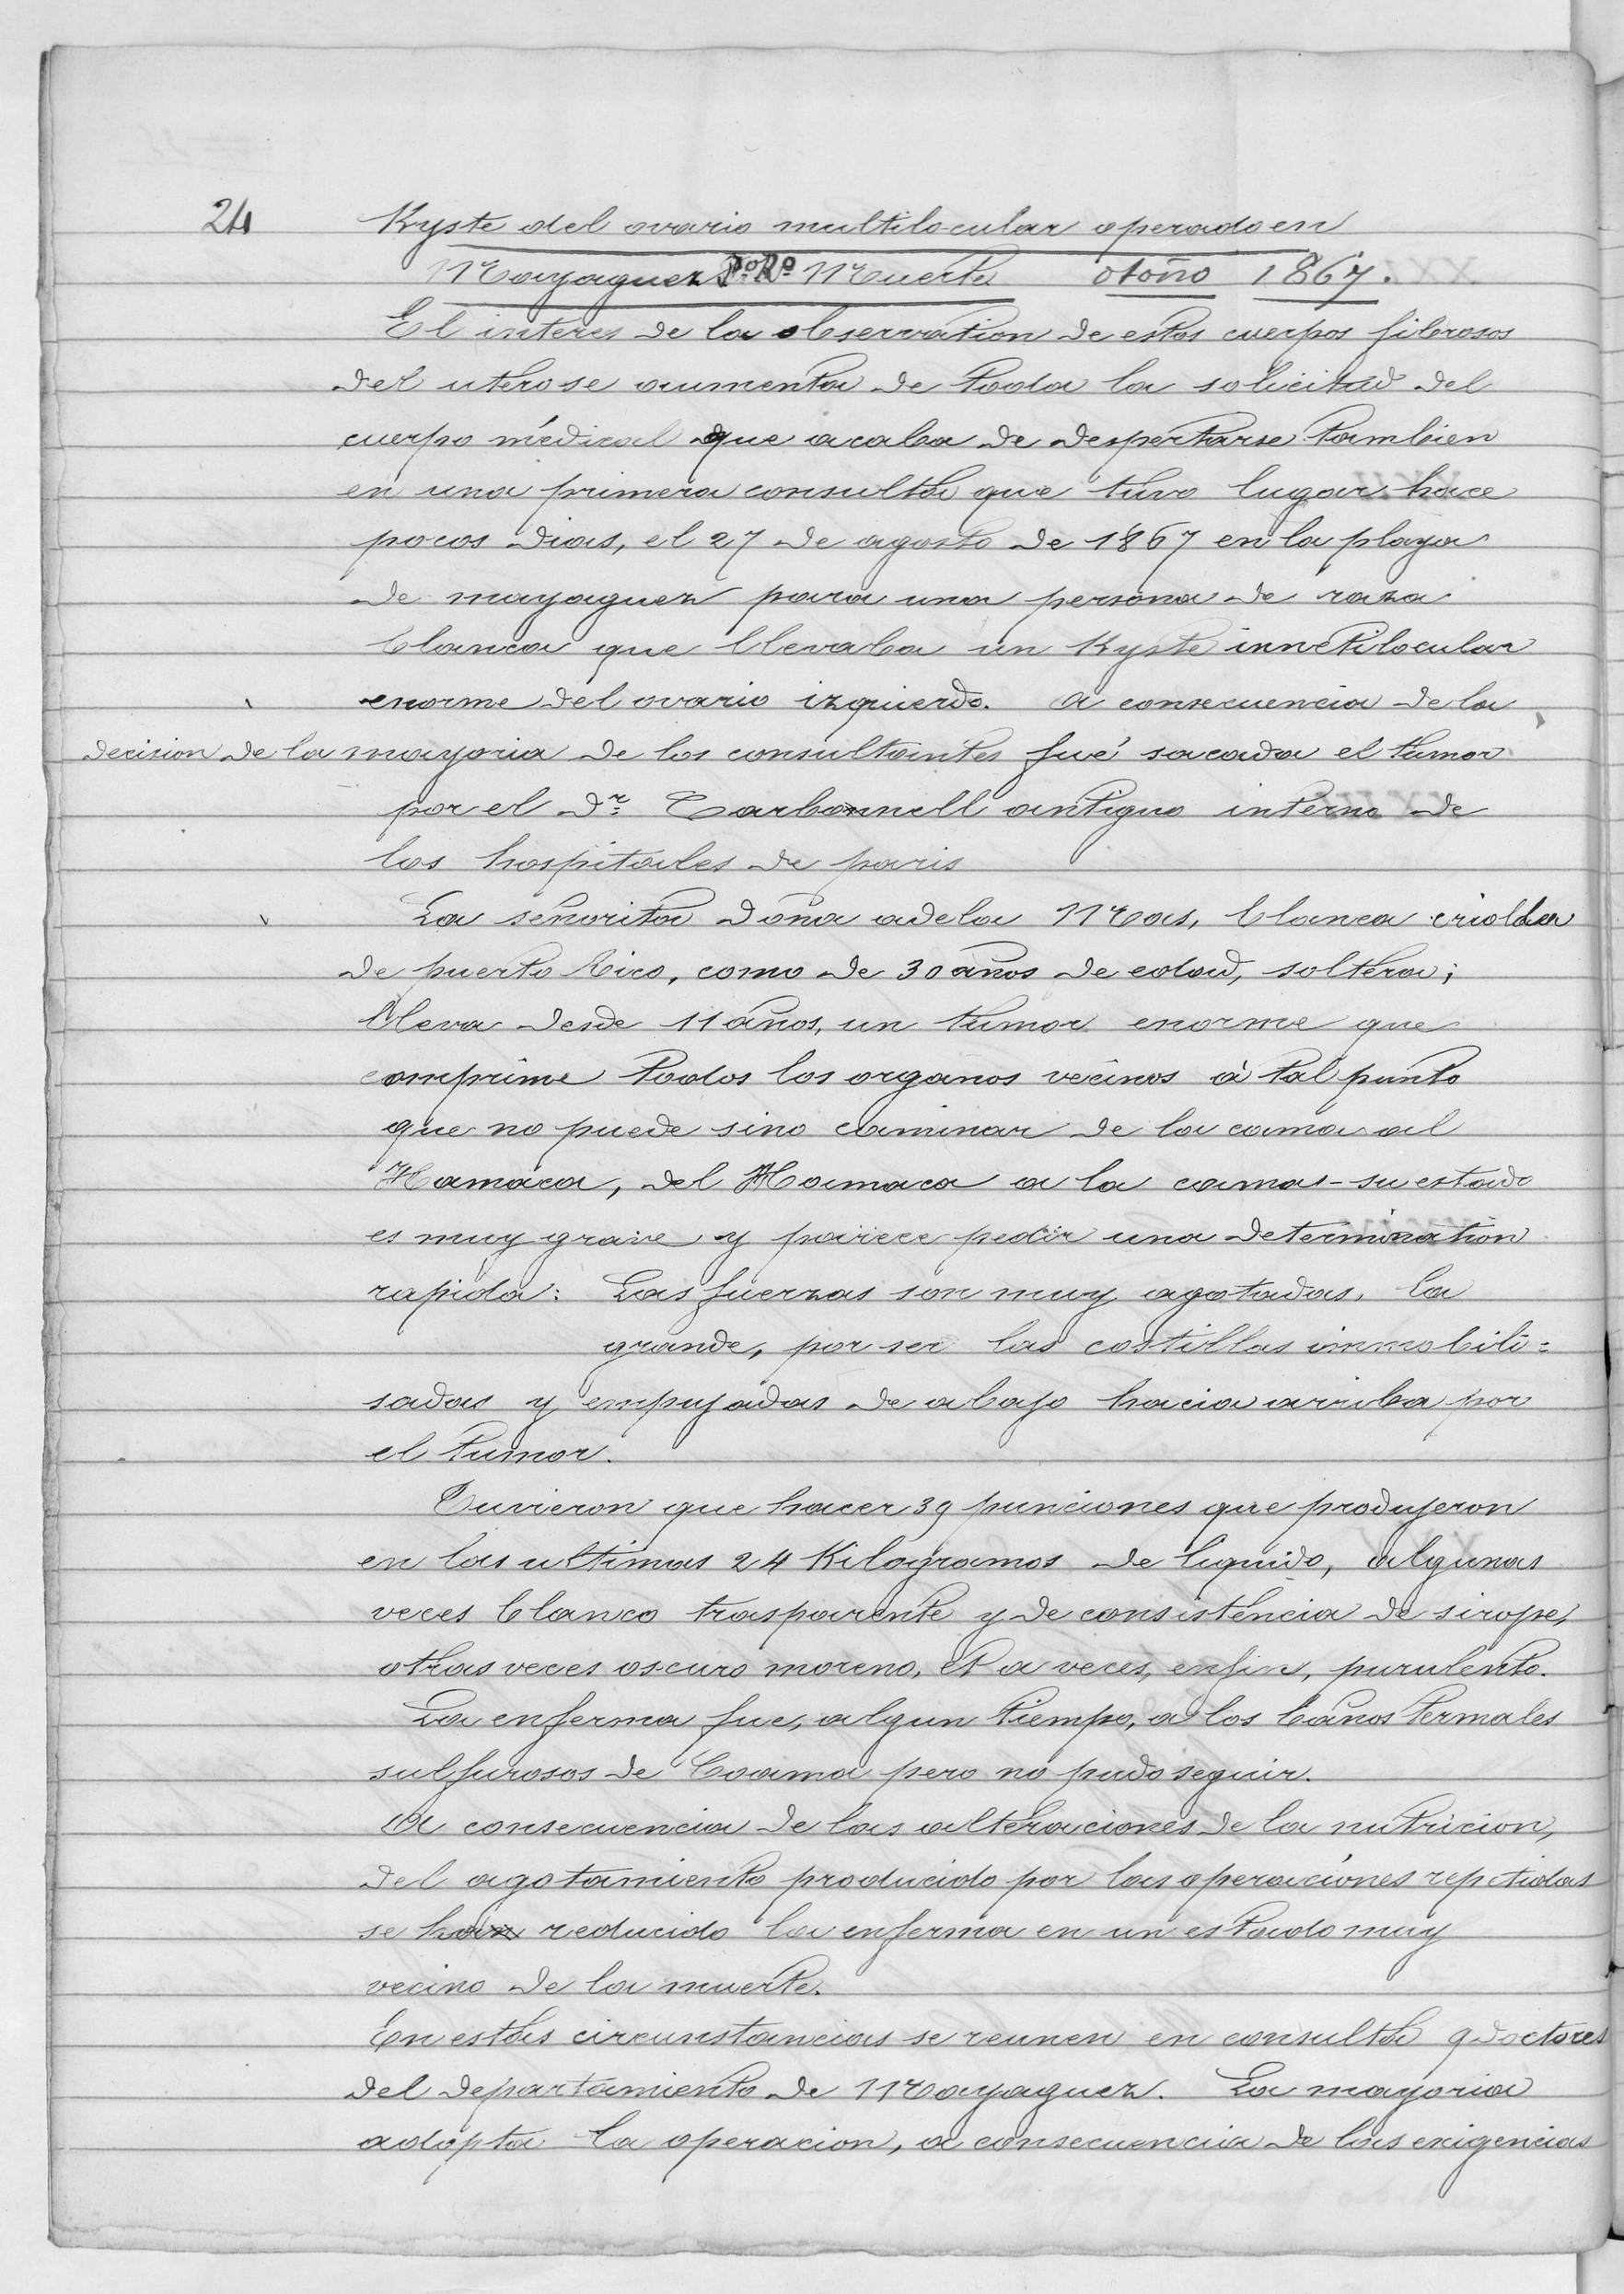 24
Kyste del ovario multilocular operado en
Mayaguez Pto Ro Muerte otoño 1867.
El interes de la observation de estos cuerpos fibrosos
del utero se aumenta de toda la solicitud del
cuerpo médical que acaba de despertarse tambien
en una primera consulta que tuvo lugar hace
pocos dias, el 27 de agosto de 1867 en la playa
de mayaguez para una persona de raza
blanca que llevaba un Kyste
enorme del ovario izquierdo. a consecuencia de la
decision de la mayoria de los consultantes fué sacada el tumor
por el Dr. Carbonnell antiguo interno de
los hospitales de paris
La señorita doña adela Mas, blanca criolla
de puerto Rico, como de 30 años de edad, soltera;
lleva desde 11 años, un tumor enorme que
comprime todos los organos vecinos à tal punto
que no puede sino caminar de la cama al
Hamáca, del Hamaca a la cama - su estado
es muy grave y parece pedir una determination
rapida: Las fuerzas son muy agotadas, la
grande, por ser las costillas immobili=
sadas y empujadas de abajo hacia arriba por
el tumor.
Tuvieron que hacer 39 punciones que produjeron
en las ultimas 24 Kilogramos de liquido, algunas
veces blanco trasparente y de consistencia de sirope,
otras veces oscuro moreno, et a veces, enfin, purulento.
La enferma fue, algun tiempo, a los baños termales
sulfurosos de Coama pero no pudo seguir.
A consecuencia de las alteraciones de la nutricion,
del agotamiento producido por las operaciones repetidas
se ha reducido la enferma en un estado muy
vecino de la muerte.
En estas circunstancias se reunen en consulta 9 doctores
del departamiento de Mayaguez. La mayoria
adopta la operacion, a consecuencia de las exigencias